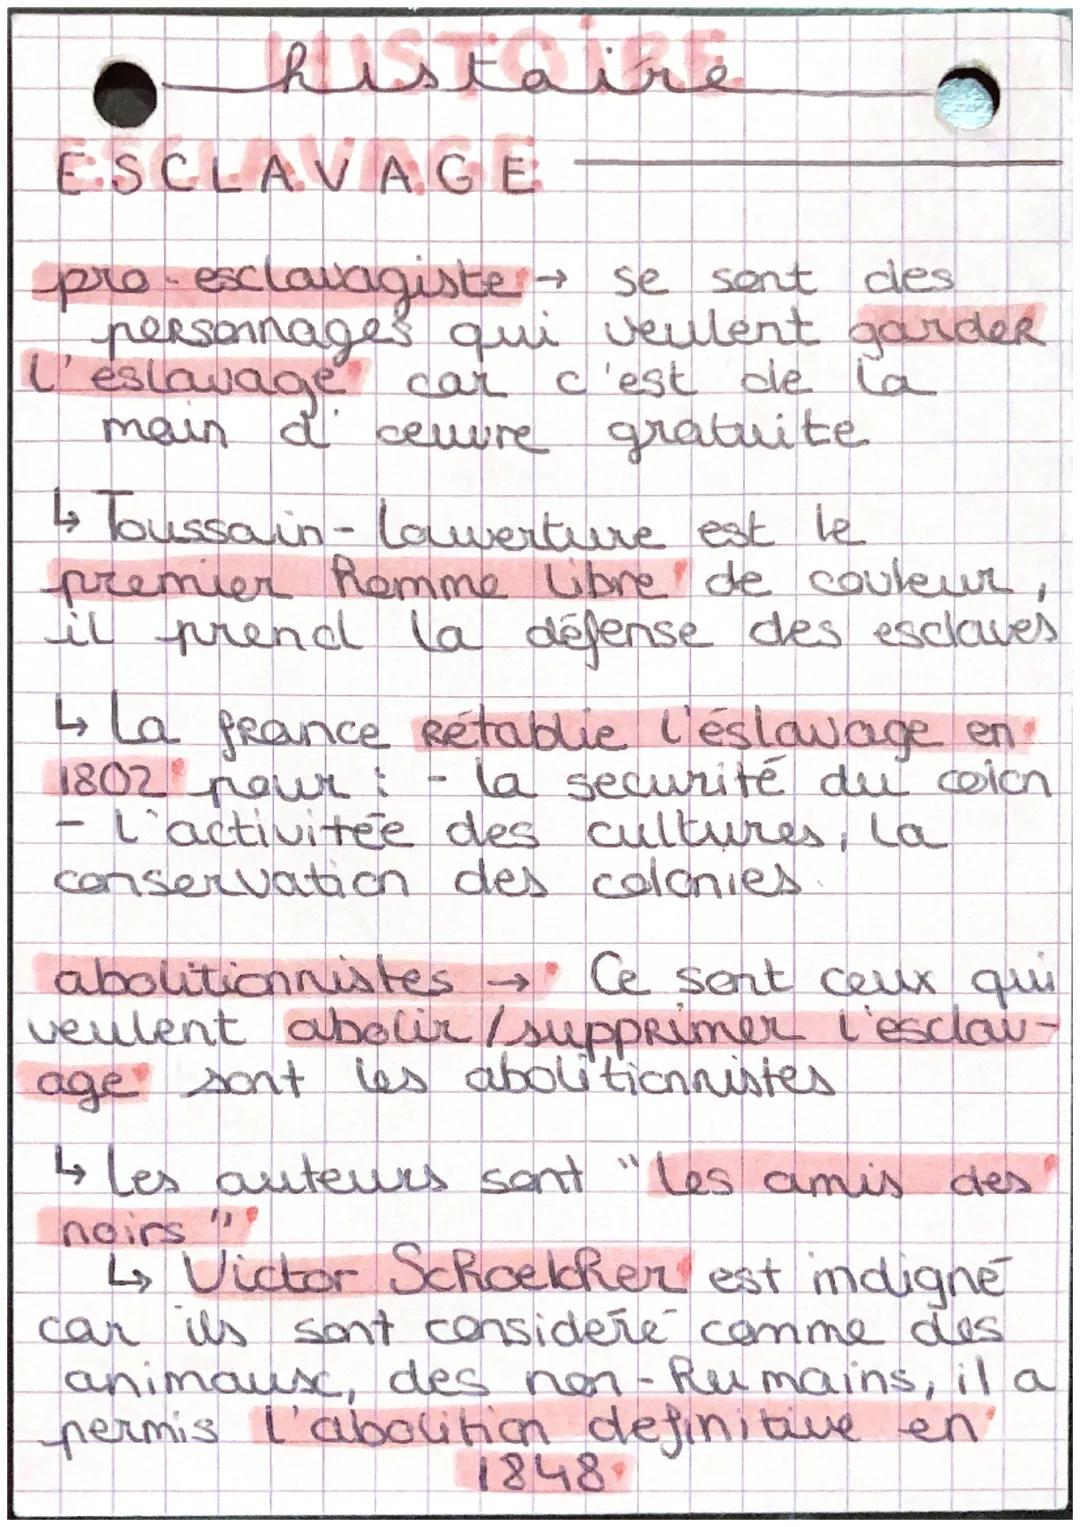 HISTOIRE
histoire
ESCLAVAGE
pro-esclavagiste → se sont des
personnages qui veulent garder
l'éslavage car c'est de la
main d'œuvre gratuite
↳ Toussain-Louverture est le
premier homme libre de couleur,
il prend la défense des esclaves
↳ La france rétablie l'éslavage en
1802 pour : - la securité du colon
- l'activitée des cultures, la
conservation des colonies.
abolitionnistes → Ce sont ceux qui
veulent abolir/supprimer l'esclav-
age sont les abolitionnistes
↳ les auteurs sont "les amis des
noirs"
↳ Victor Schoelcher est indigné
car ils sont consideré comme des
animaux, des non-humains, il a
permis l'abolition definitive en
1848